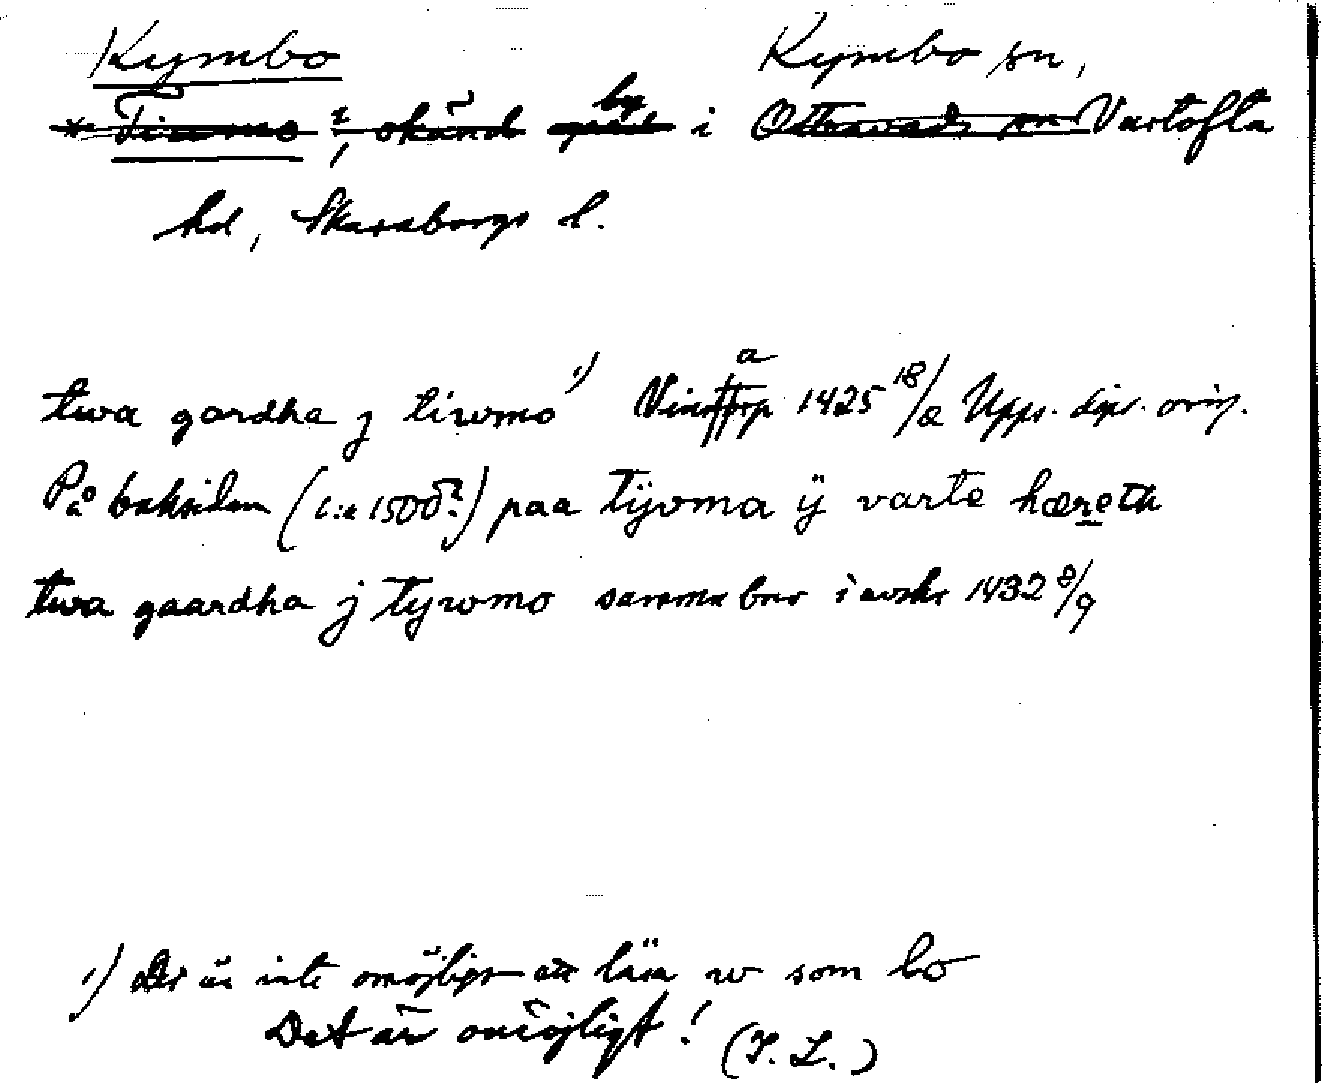 Kymbo Kymbo sn,
* Tiwmo ?, okänd by i Ottravads sn Vartofta
hd, Skaraborgs l.
twa gardha j tiwmo 1) 1425 18/2 Upps. dipl. orig.
På baksidan (c:a 1500?) paa Tÿoma ÿ varte hæreth
twa gaardha j Tywmo samma brev i avskr 1432 8/9
1) Det är inte omöjligt att läsa w som bo
Det är omöjligt! (I. L.)